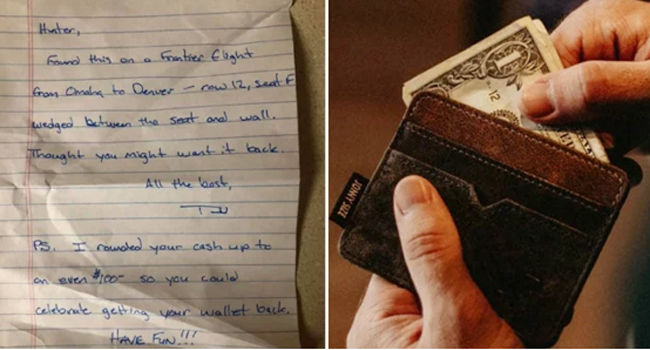 Hunter,
Found this on a Frontier flight
from Omaha to Denver — row 12, seat F
wedged between the seat and wall.
Thought you might want it back.
All the best,
PS. I rounded your cash up to
an even $100- so you could
celebrate getting your wallet back.
HAVE FUN!!!
1
12
JONNY SIZE